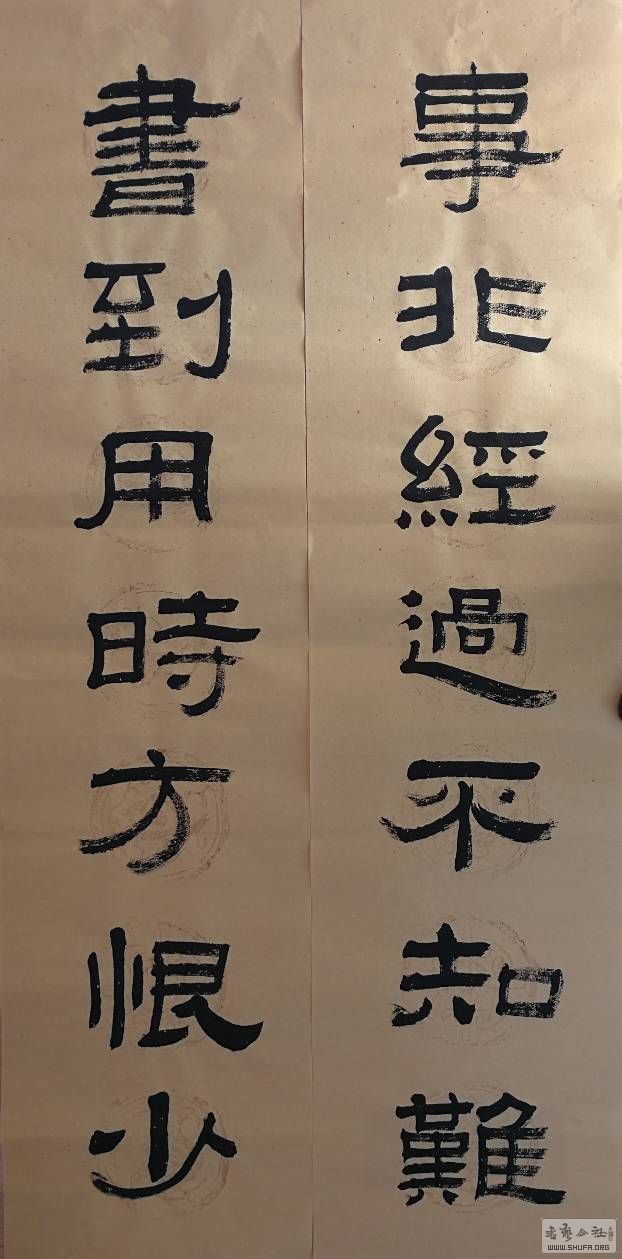 事非經過不知難
書到用時方恨少
書藝公社
WWW.SHUFA.ORG